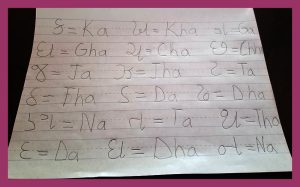 ક = Ka ખ = Kha ગ = Ga
ઘ = Gha ચ = Cha છ =
જ = Ja ઝ = Jha ટ = Ta
ઠ = Tha ડ = Da ઢ = Dha
ણ = Na ત = Ta થ = Tha
દ = Da ધ = Dha ન = Na